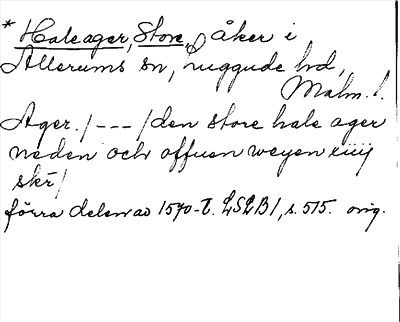 * Haleager, Store, åker i
Allerums sn, Luggude hd,
Malm. l.
Ager. / --- / den store hale ager
neden och offuen weyen xiiij
skr /
förra delen av 1570-t. LSLB 1, s. 515. orig.